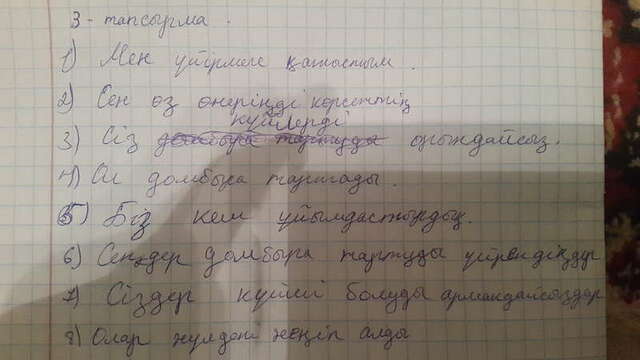 3 - тапсырма.
1) Мен үйірмеге қатыстым.
2) Сен өз өнеріңді көрсеттің
күйлерді
3) Сіз домбыра тартуды орындайсыз.
4) Ол домбыра тартады.
5) Біз кеш ұйымдастырдық.
6) Сендер домбыра тартуды үйрендіңдер
7) Сіздер күйші болуды армандайсыздар
8) Олар жүлдені жеңіп алды